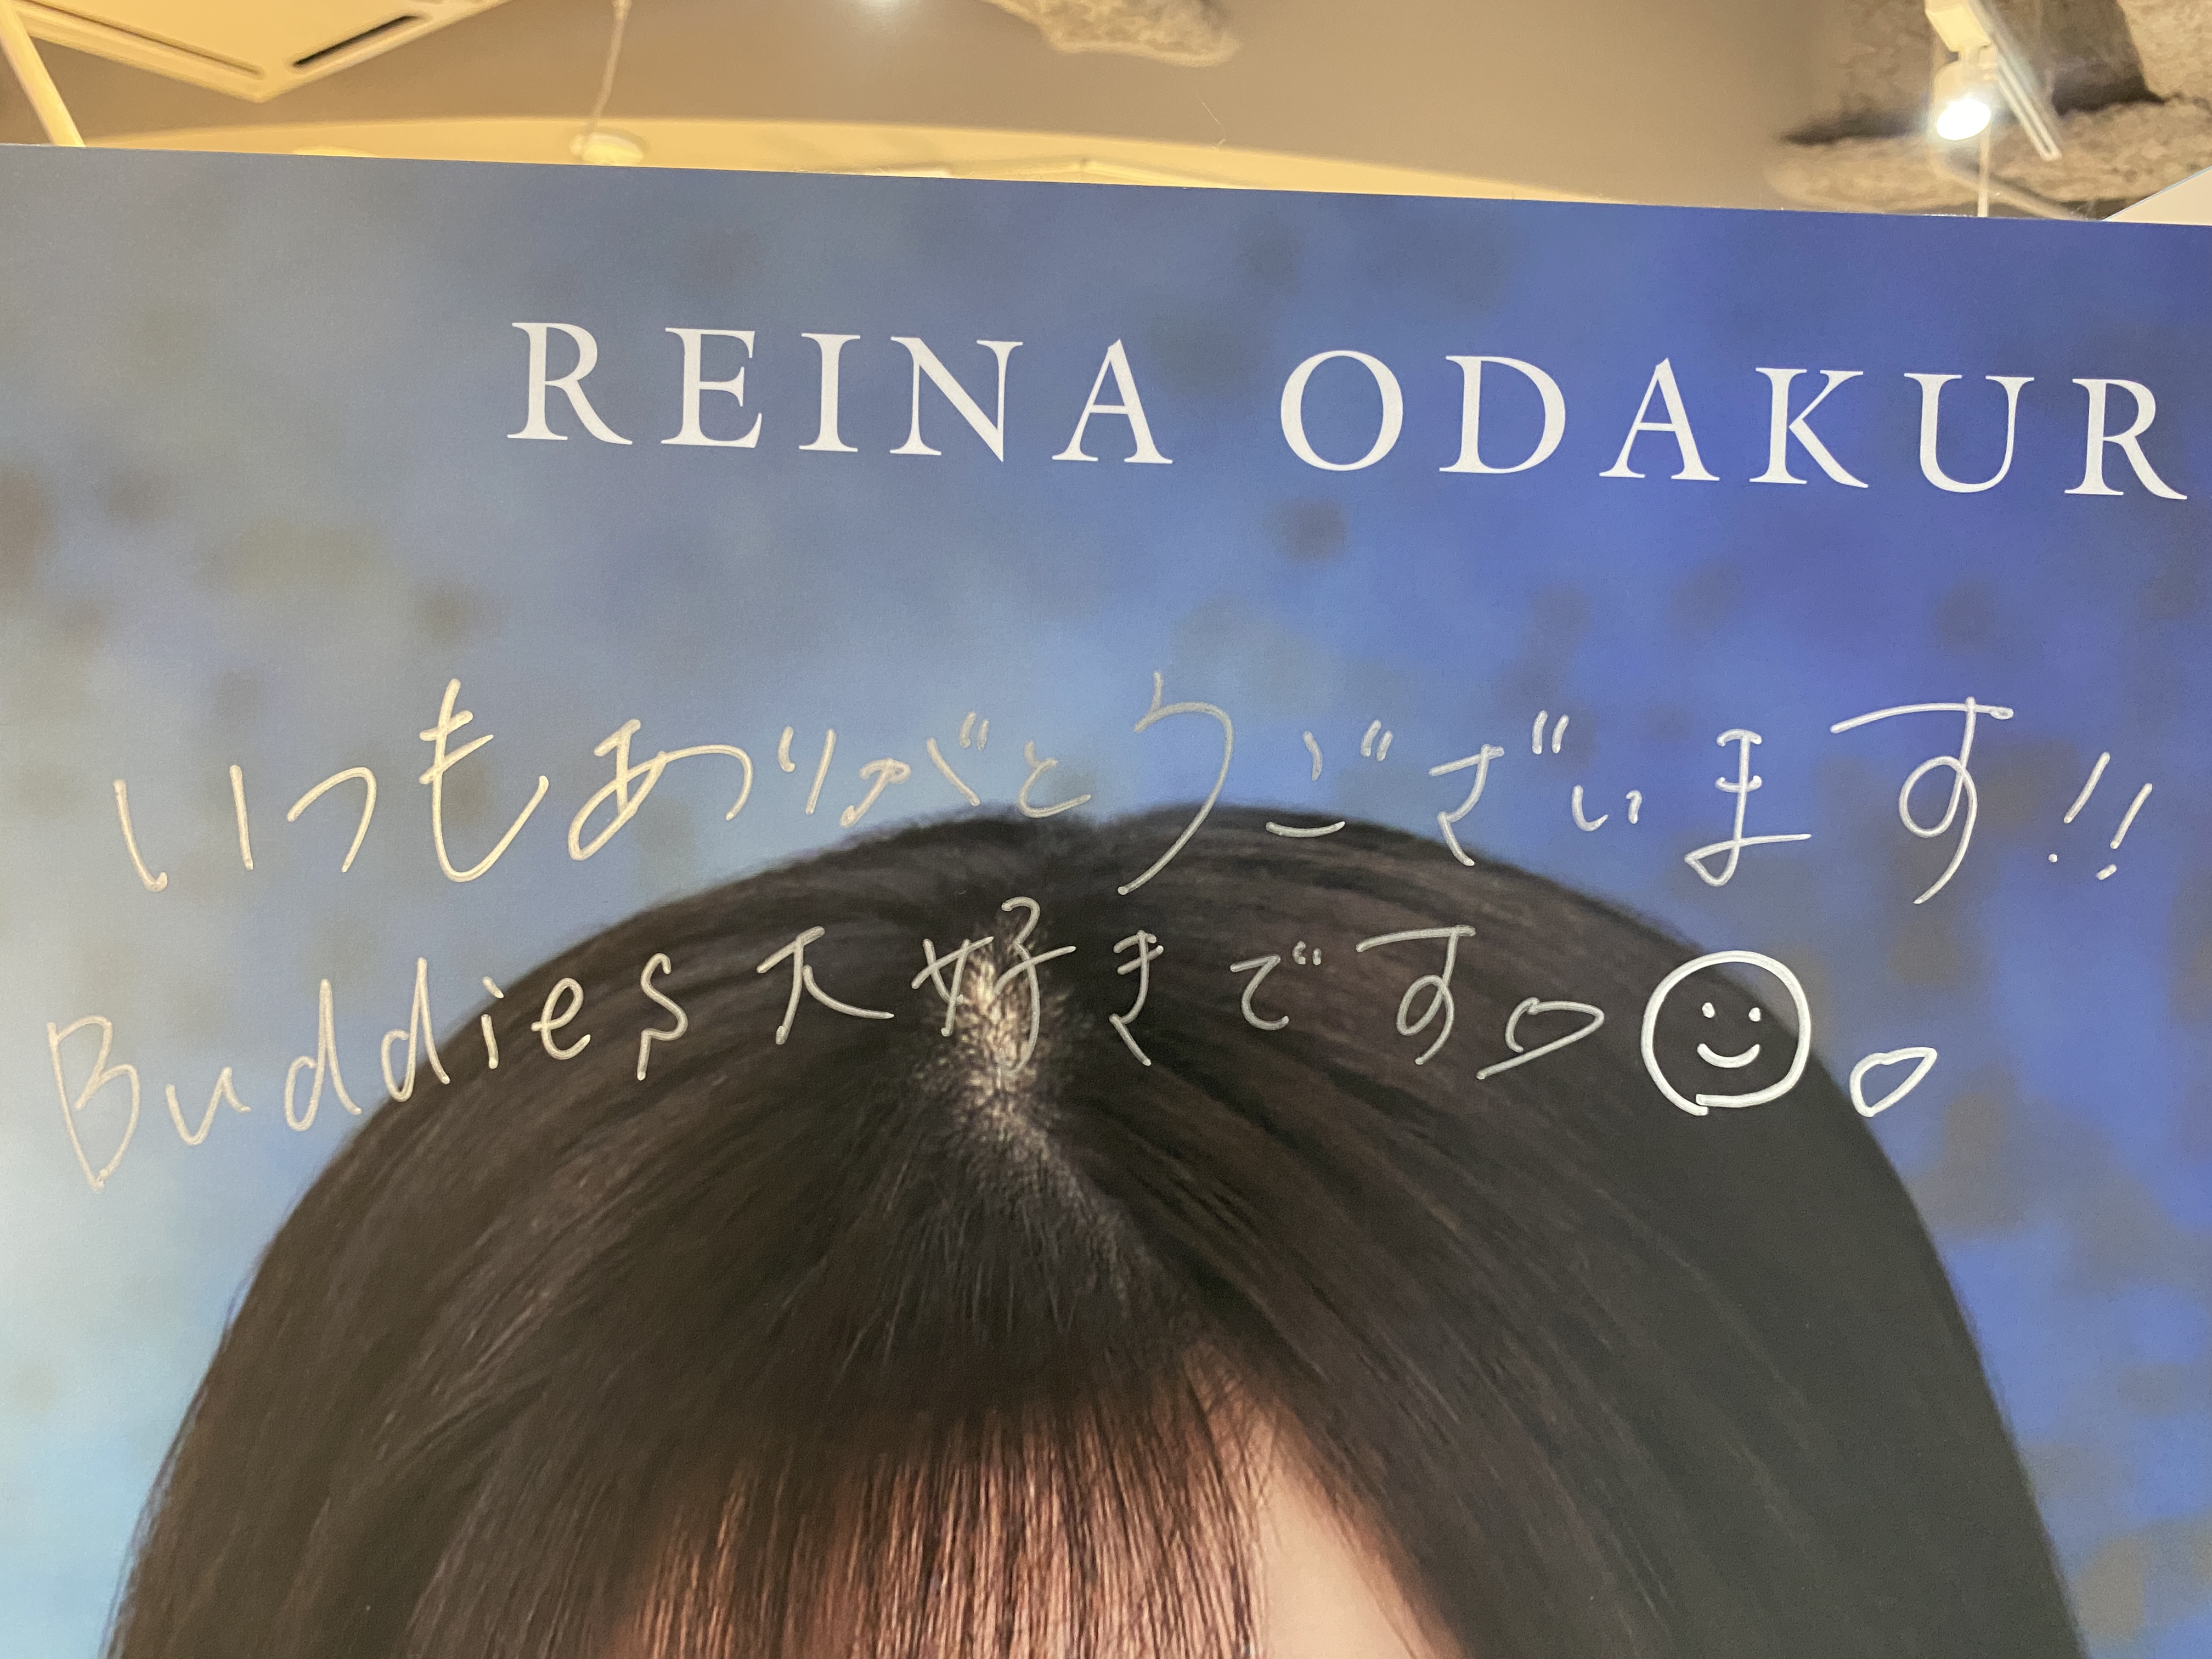 REINA ODAKUR
いつもありがとうございます!!
Buddies大好きです♡☺♡